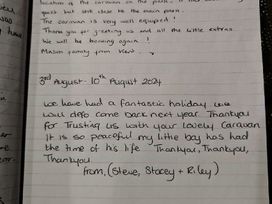 location of the caravan on the park. It was
quiet but still close to the main park.
The caravan is very well equipped!
Thank you for greeting us and all the little extras.
We will be booking again!
Mason family from Kent.
3rd August - 10th August 2024
We have had a fantastic holiday we
will defo come back next year Thankyou
for Trusting us with your lovely Caravan
it is so peaceful my little boy has had
the time of his life Thankyou, Thankyou,
Thankyou
from, (Steve, Stacey + Riley)